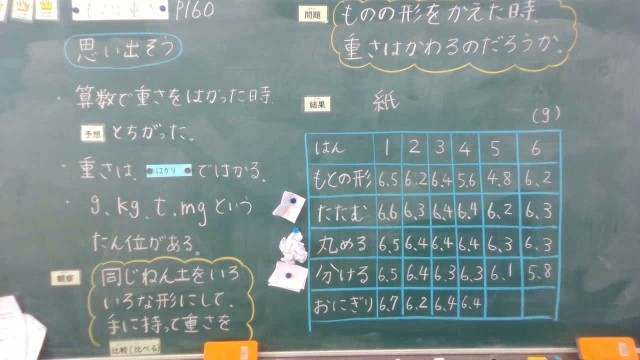 P160
思い出そう
・算数で重さをはかった時、
予想 とちがった。
・重さは、はかり ではかる。
・g、kg、t、mg という
たん位がある。
観察
同じねん土をいろ
いろな形にして、
手に持って重さを
比較(比べる)
問題
ものの形をかえた時、
重さはかわるのだろうか。
結果
紙
(g)
はん 1 2 3 4 5 6
もとの形 6.5 6.2 6.4 5.6 4.8 6.2
たたむ 6.6 6.3 6.4 6.4 6.2 6.3
丸める 6.5 6.4 6.4 6.4 6.3 6.3
分ける 6.5 6.4 6.3 6.3 6.1 5.8
おにぎり 6.7 6.2 6.4 6.4